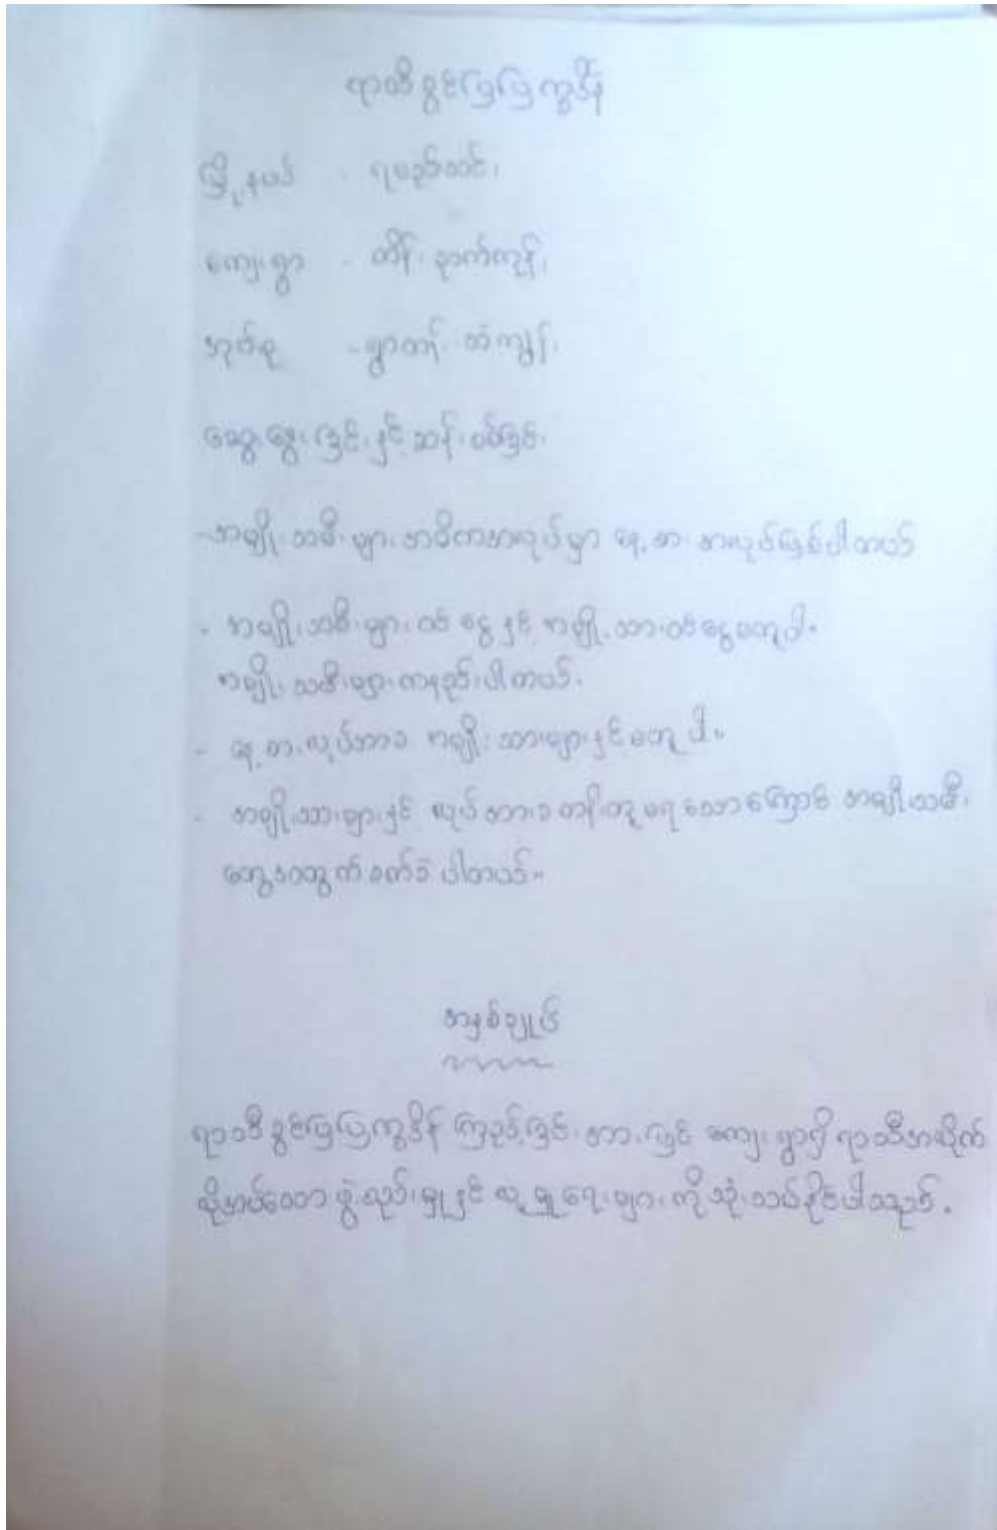 ရာသီခွင်ပြပြက္ခဒိန်
မြို့နယ် - ရမည်းသင်း
ကျေးရွာ - တိန်းညက်ကုန်း
အုပ်စု - ရွာတန်း သဲကျွန်း
ဆွေးနွေးခြင်းနှင့် ဆန်းစစ်ခြင်း
- အမျိုးသမီးများ အဓိကအလုပ်မှာ နေ့စားအလုပ်ဖြစ်ပါတယ်
- အမျိုးသမီးများဝင်ငွေနှင့် အမျိုးသားဝင်ငွေမတူပါ။
အမျိုးသမီးများကနည်းပါတယ်။
- နေ့စားလုပ်အားခ အမျိုးသားများနှင့်မတူပါ။
- အမျိုးသားများနှင့် လုပ်အားခတန်းတူမရသောကြောင့် အမျိုးသမီး
တွေအတွက်ခက်ခဲပါတယ်။
အနှစ်ချုပ်
ရာသီခွင်ပြပြက္ခဒိန် ကြည့်ခြင်းအားဖြင့် ကျေးရွာရှိ ရာသီအလိုက်
လိုအပ်သောဖွဲ့စည်းမှုနှင့် လူမှုရေးများကို သုံးသပ်နိုင်ပါသည်။